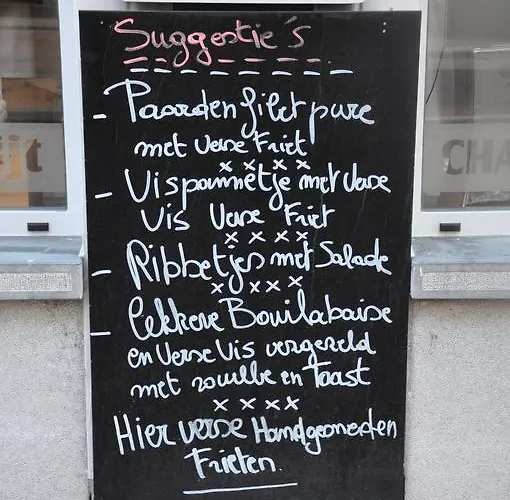 Suggestie's
- Paardenfilet pure
met Verse Friet
x x x x
- Vispannetje met Verse
Vis Verse Friet
x x x x
- Ribbetjes met Salade
x x x x
- Lekkere Bouilabaise
en Verse Vis vergezeld
met rouille en Toast
x x x x
Hier verse Handgesneden
Frieten.
ijt
CHA